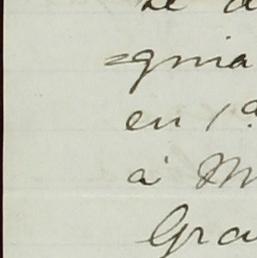 =gnia
en 1ª
à M
Gra